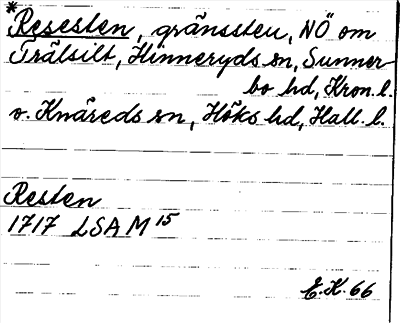 *Resesten, gränssten, NÖ om
Trälsilt, Hinneryds sn, Sunner-
bo hd, Kron. l.
o. Knäreds sn, Höks hd, Hall. l.
Resten
1717 LSA M 15
E.K. 66